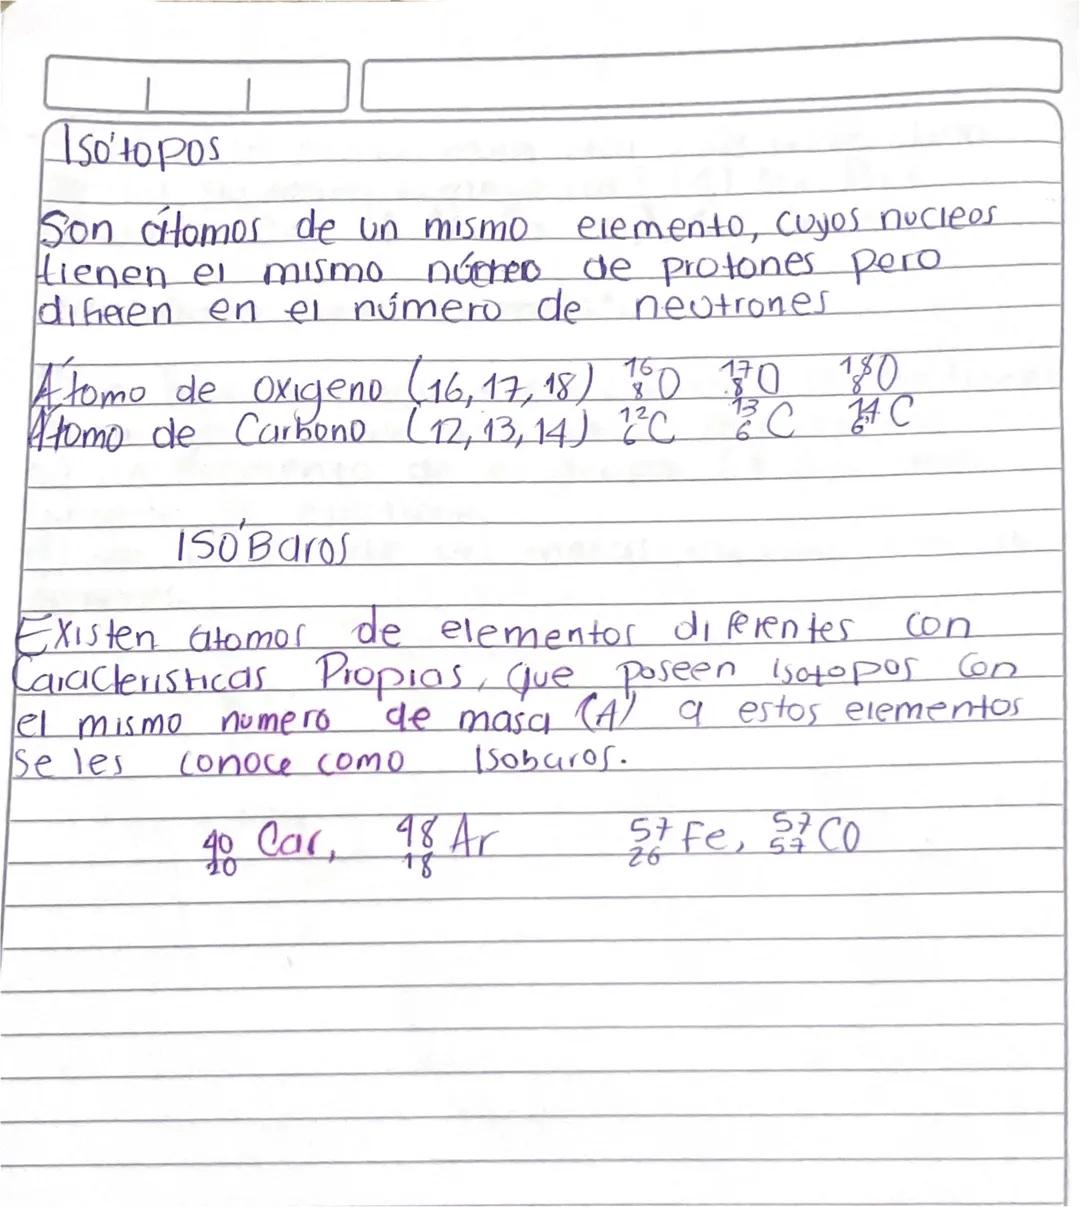 Isótopos
Son átomos de un mismo elemento, cuyos nucleos
tienen el mismo de protones pero
difieren en el número de neutrones
Átomo de oxigeno (16, 17, 18) ¹⁶₈O ¹⁷₈O ¹⁸₈O
Átomo de Carbono (12, 13, 14) ¹²₆C ¹³₆C ¹⁴₆C
ISÓBaros
Existen atomos de elementos diferentes con
Caracteristicas Propias, que poseen isotopos con
el mismo numero de masa (A) a estos elementos
se les conoce como Isobaros.
⁴⁰₂₀ Car, ⁴⁸₁₈ Ar ⁵⁷₂₆ Fe, ⁵⁷₅₇ CO